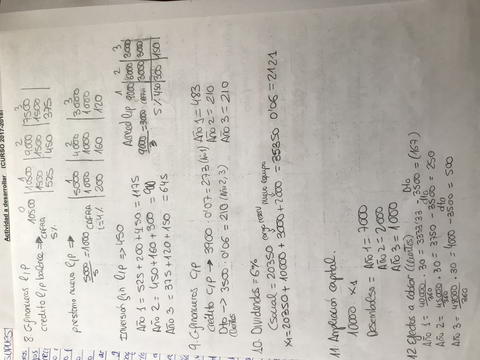 Actividad a desarrollar CURSO 2017-2018
8. G. financieros l/p
crédito l/p balance => 10500
CAFRA
5%
1 10500 1500 525
2 9000 1500 450
3 7500 1500 375
préstamo nuevo l/p =>
5000 = 1000 CAFRA
5 i=4%
1 5000 1000 200
2 4000 1000 160
3 3000 1000 120
Inversión fin l/p => 450
Año 1 = 525 + 200 + 450 = 1175
Año 2 = 450 + 160 + 300 = 910
Año 3 = 375 + 120 + 150 = 645
9000 = 3000 CAFRA
3
1 2 3
9000 6000 3000
3000 3000 3000
5% 450 300 150
9. G. financieros c/p
crédito c/p -> 3900 · 0'07 = 273 (A=1)
Dto -> 3500 · 0'06 = 210 (Año 2, 3)
Año 1 = 483
Año 2 = 210
Año 3 = 210
10. Dividendos = 6%
Csocial = 20350
x1 = 20350 + 10000 + 3000 + 2000 = 35350 · 0'06 = 2121
11. Ampliación capital.
10000 x1
Desembolsa = Año 1 = 7000
Año 2 = 2000
Año 3 = 1000
12. Efectos a cobrar (clientes)
Año 1 = 40000 · 30 = 3333'33 - 3500 = (167)
360 Dto
Año 2 = 45000 · 30 = 3750 - 3500 = 250
360 dto
Año 3 = 48000 · 30 = 4000 - 3500 = 500
360 dto